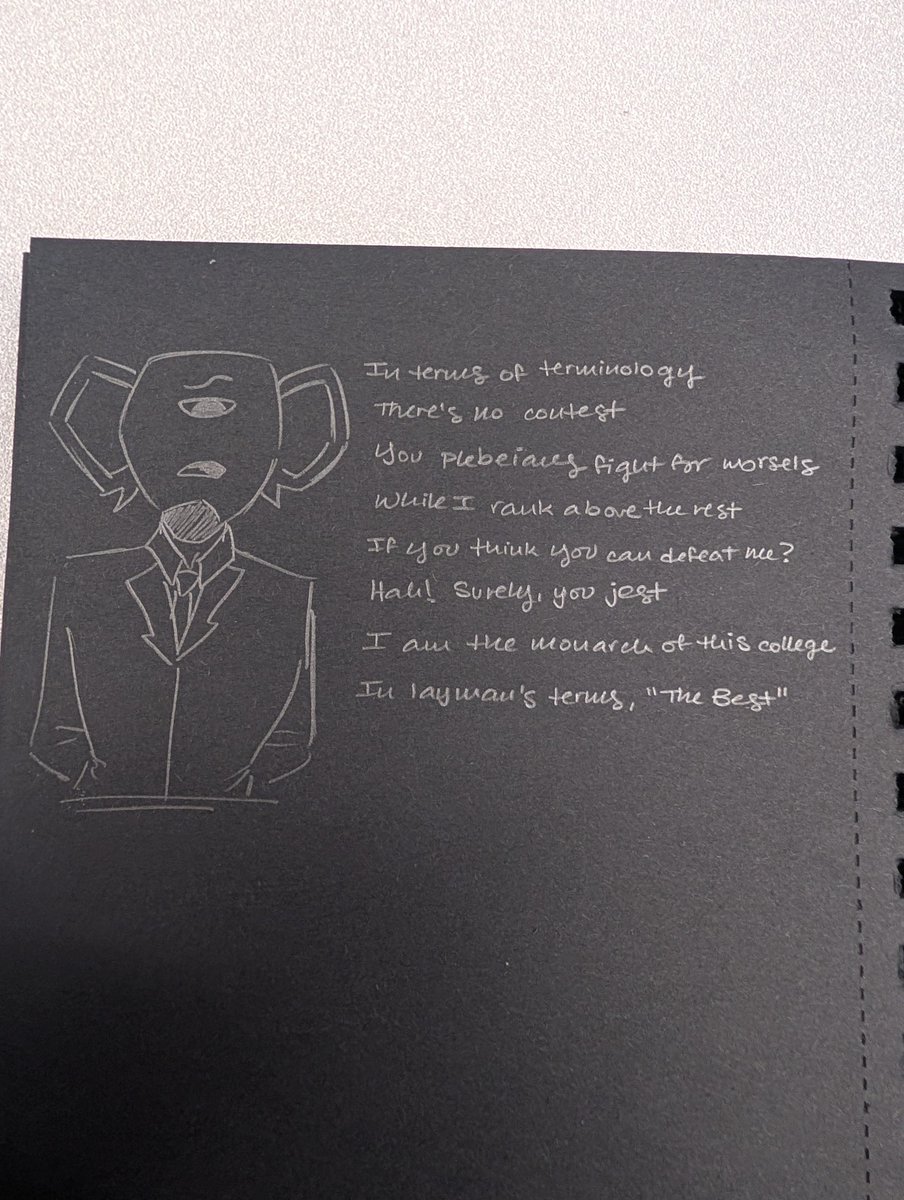 In terms of terminology
There's no contest
You plebeians fight for morsels
While I rank above the rest
If you think you can defeat me?
Hah! Surely, you jest
I am the monarch of this college
In layman's terms, "The Best"